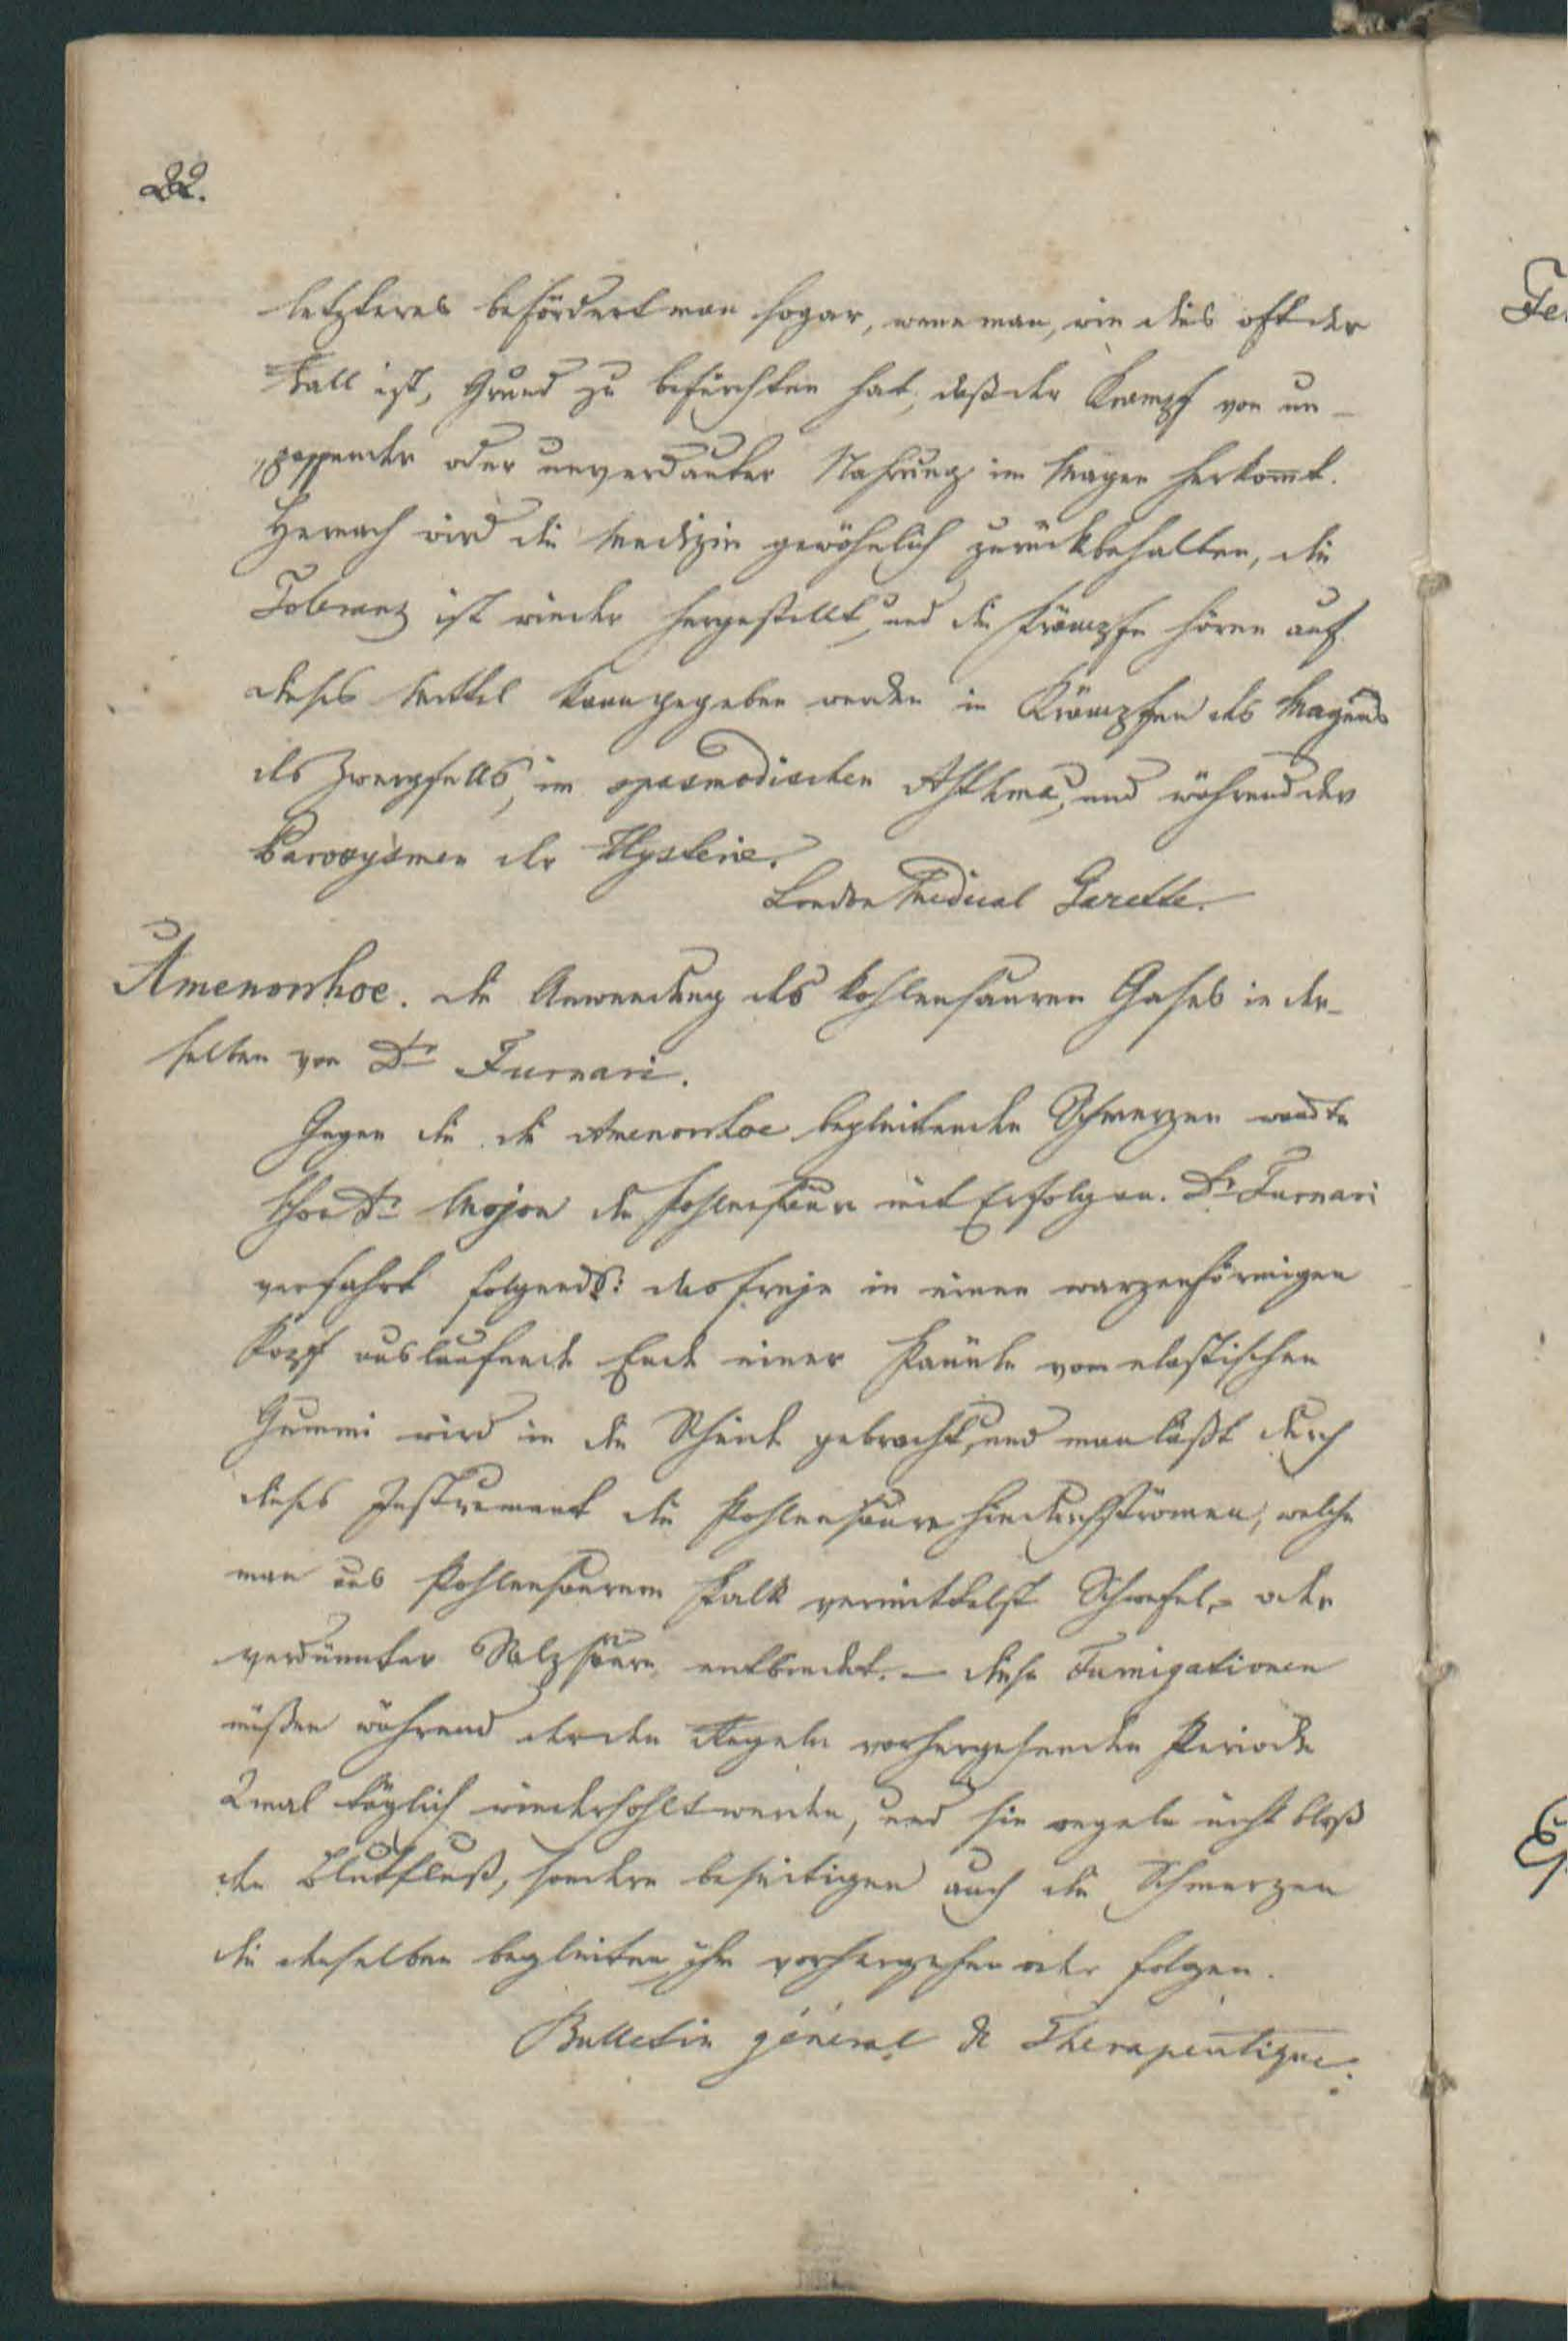 22.
letzteres befördert man sogar, wenn man, wie dies oft der
Fall ist, Grund zu befürchten hat, daß der Krampf von un-
passender oder unverdauter Nahrung im Magen herkommt.
Hernach wird die Medizin gewöhnlich zurückbehalten, die
Toleranz ist wieder hergestellt, und die Krämpfe hören auf.
dieses Mittel kann gegeben werden in Krämpfen des Magens
des Zwergfells, im spasmodischen Asthma, und während der
Paroxysmen der Hysterie.
London Medical Gazette.
Amenorrhoe. die Anwendung des kohlensauren Gases in der-
selben von Dr Furnari.
Gegen die die Amenorrhoe begleitenden Schmerzen wandte
schon Dr Mojon die Kohlensäure mit Erfolg an. Dr Furnari
verfährt folgends: das freye in einen warzenförmigen
Kopf auslaufende Ende einer Kanüle vom elastischen
Gummi wird in die Scheide gebracht, und man läßt durch
dieses Instrument die Kohlensäure hindurchströmen, welche
man aus kohlensaurem Kalk vermittelst Schwefel- oder
verdünnter Salzsäure entbindet. – diese Fumigationen
müßen während der den Regeln vorhergehenden Periode
2mal täglich wiederhohlt werden, und sie regeln nicht bloß
den Blutfluß, sondern beseitigen auch die Schmerzen
die denselben begleiten, ihm vorhergehen oder folgen.
Bulletin géneral de Therapeutique.
Fe
Ep